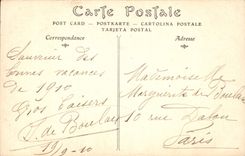 Carte Postale
POST CARD — POSTKARTE — CARTOLINA POSTALE
TARJETA POSTAL
Correspondance
Adresse
Souvenir des
bonnes vacances
de 1910
Gros baisers
de Boulais
19/9-10
Mademoiselle
Marguerite de Boulais
10 rue
Paris